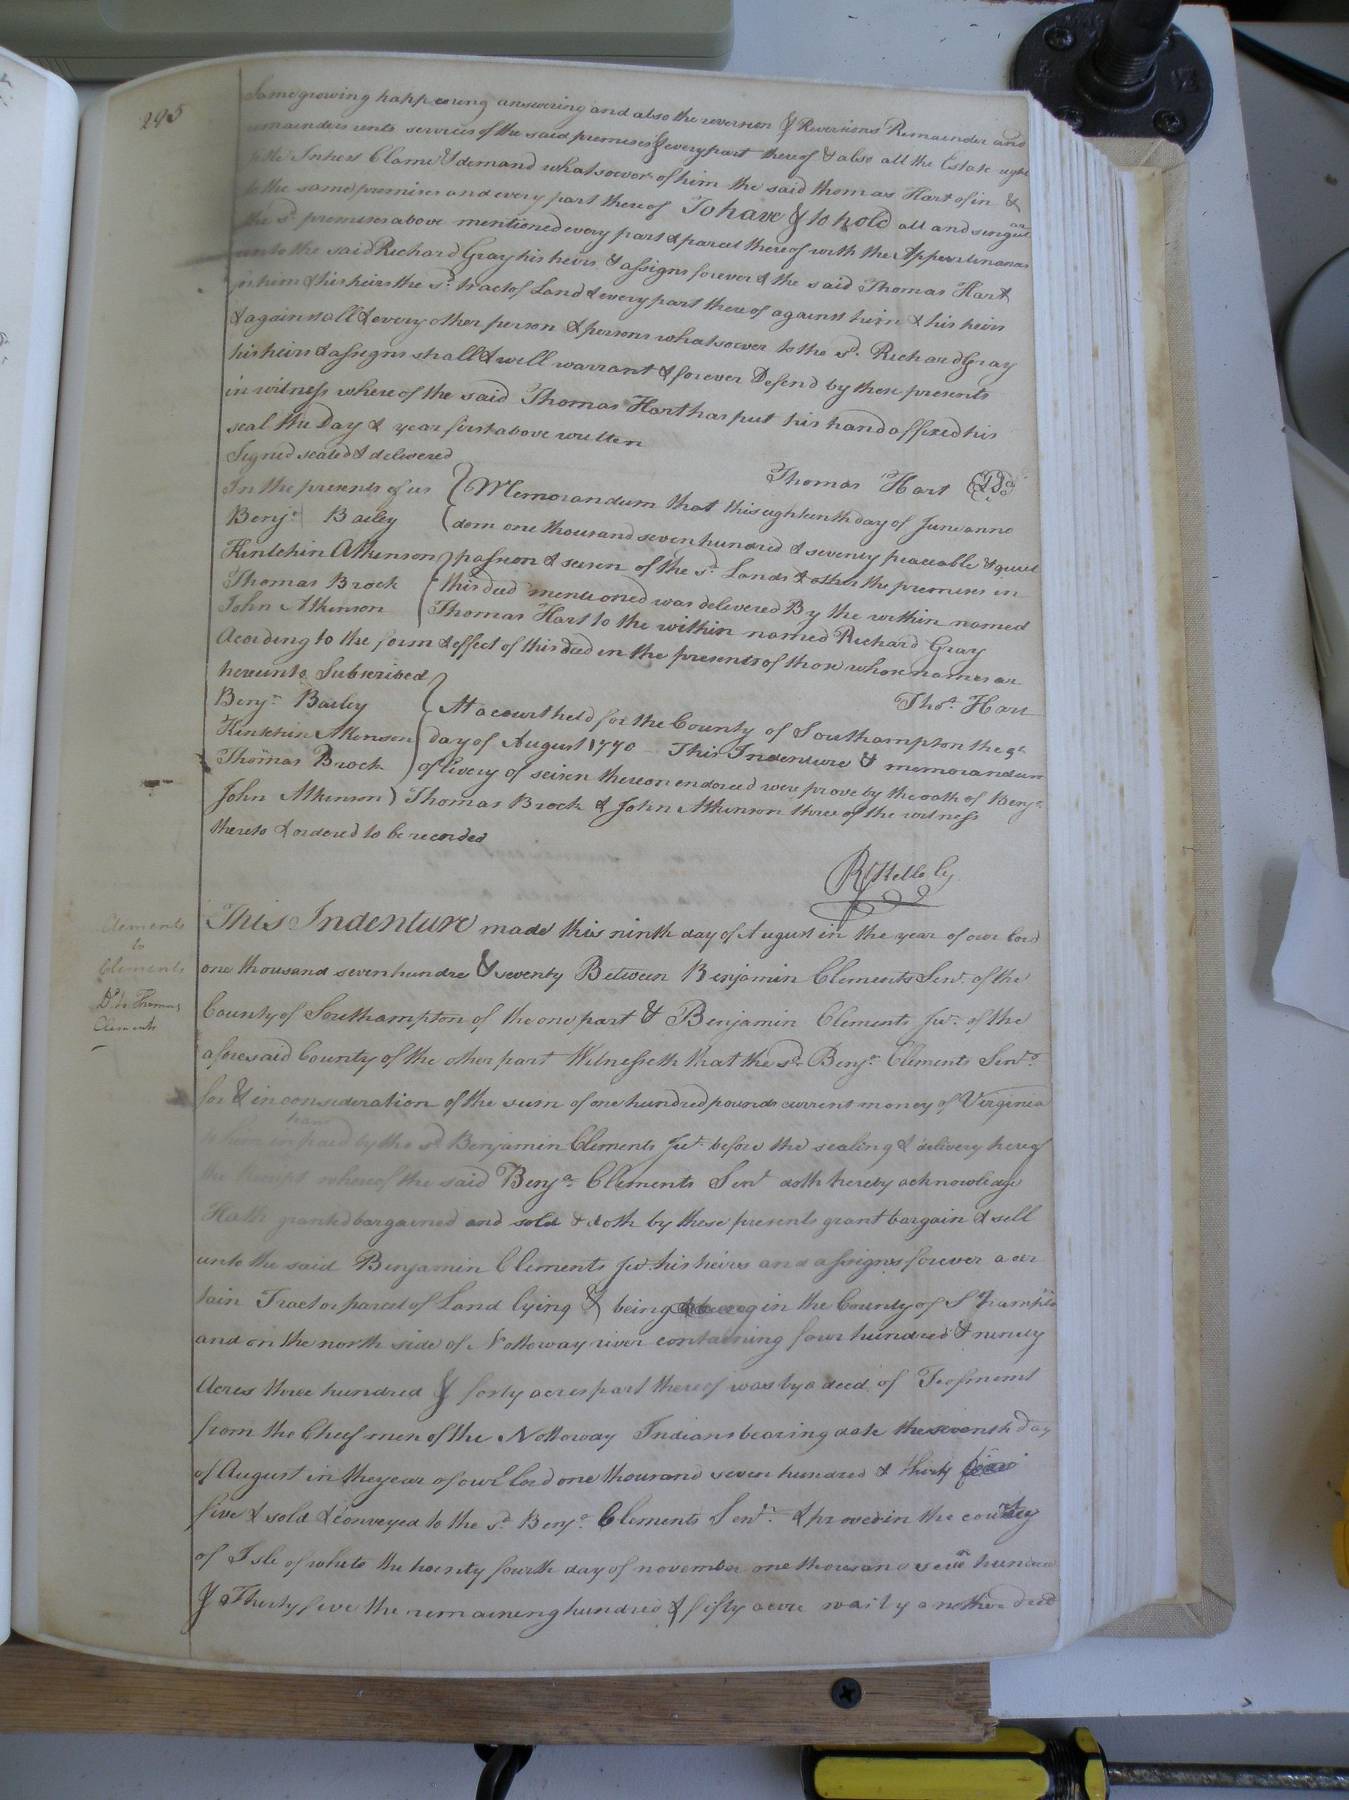 295
Same growing happening answering and also the reversion & Reversions Remainder and
remainders rents services of the said premises & every part thereof & also all the Estate right
title Intrest Clame & demand whatsoever of him the said thomas Hart of in &
to the same premises and every part thereof To have & to hold all and singular
the sd. premises above mentioned every part & parcel thereof with the Appurtenances
unto the said Richard Gray his heirs & assigns forever & the said Thomas Hart
for him & his heirs the sd. tract of Land & every part there of against him & his heirs
& against all & every other person & persons whatsoever to the sd. Richard Gray
his heirs & assigns shall & will warrant & forever Defend by these presents
in witness where of the said Thomas Hart has put his hand affixed his
seal the Day & year first above written
Signed sealed & delivered
Thomas Hart
In the presents of us Memorandum that this ughteenth day of June anno
Benja. Bailey dom one thousand seven hundred & seventy peaceable & quiet
Kintchin Atkinson passion & seisen of the sd. Lands & other the premises in
Thomas Brock this deed mentioned was delivered By the within named
John Atkinson Thomas Hart to the within named Richard Gray
Acording to the form & effect of this deed in the presents of those whose names ar
hereunto Subscribed
Thos. Hart
Benja. Bailey At a court held for the County of Southampton the 9th
Kintchin Atkenson day of August 1770 – This Indenture & memorandum
Thomas Brock of livery of seisen thereon endorced were prove by the oath of Benja.
John Atkinson Thomas Brock & John Atkinson three of the witness
thereto & ordered to be recorded
R Kello Cy
Clements
to
Clements
Dd. to Thomas
Clements
This Indenture made this ninth day of August in the year of our Lord
one thousand seven hundre & seventy Between Benjamin Clements Senr. of the
County of Southampton of the one part & Benjamin Clements Jur. of the
aforesaid County of the other part Witnesseth that the sd. Benja. Clements Senr.
for & in consideration of the sum of one hundred pounds current money of Virginia
to him in hand paid by the sd. Benjamin Clements Jur. before the sealing & delivery hereof
the Receipt whereof the said Benja. Clements Senr. doth hereby acknowledge
Hath granted bargained and sold & doth by these presents grant bargain & sell
unto the said Benjamin Clements Jur. his heirs and assigns forever a cer
tain Tract or parcel of Land lying & being in the County of Sohampto
and on the north side of Nottoway river containing four hundred & ninety
Acres three hundred & forty acres part thereof was by a deed of Feofment
from the Cheef men of the Nottoway Indians bearing date the seventh day
of August in the year of our Lord one thousand seven hundred & thirty
five & sold & conveyed to the sd. Benja. Clements Senr. & proved in the county
of Isle of white the twenty fourth day of november one thousand seven hundred
& Thirty five the remaining hundred & fifty acre was by another deed